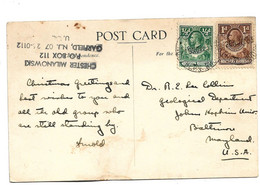 POST CARD
CHESTER MILANOWSKI
P.O. BOX 112
GARFIELD, N.J. 07
Christmas Greetings and
best wishes to you and
all the old group who
are still standing by
Arnold
Dr. R. E. Lee Collins
Geological Department
Johns Hopkins Univ.
Baltimore
Maryland.
U.S.A.